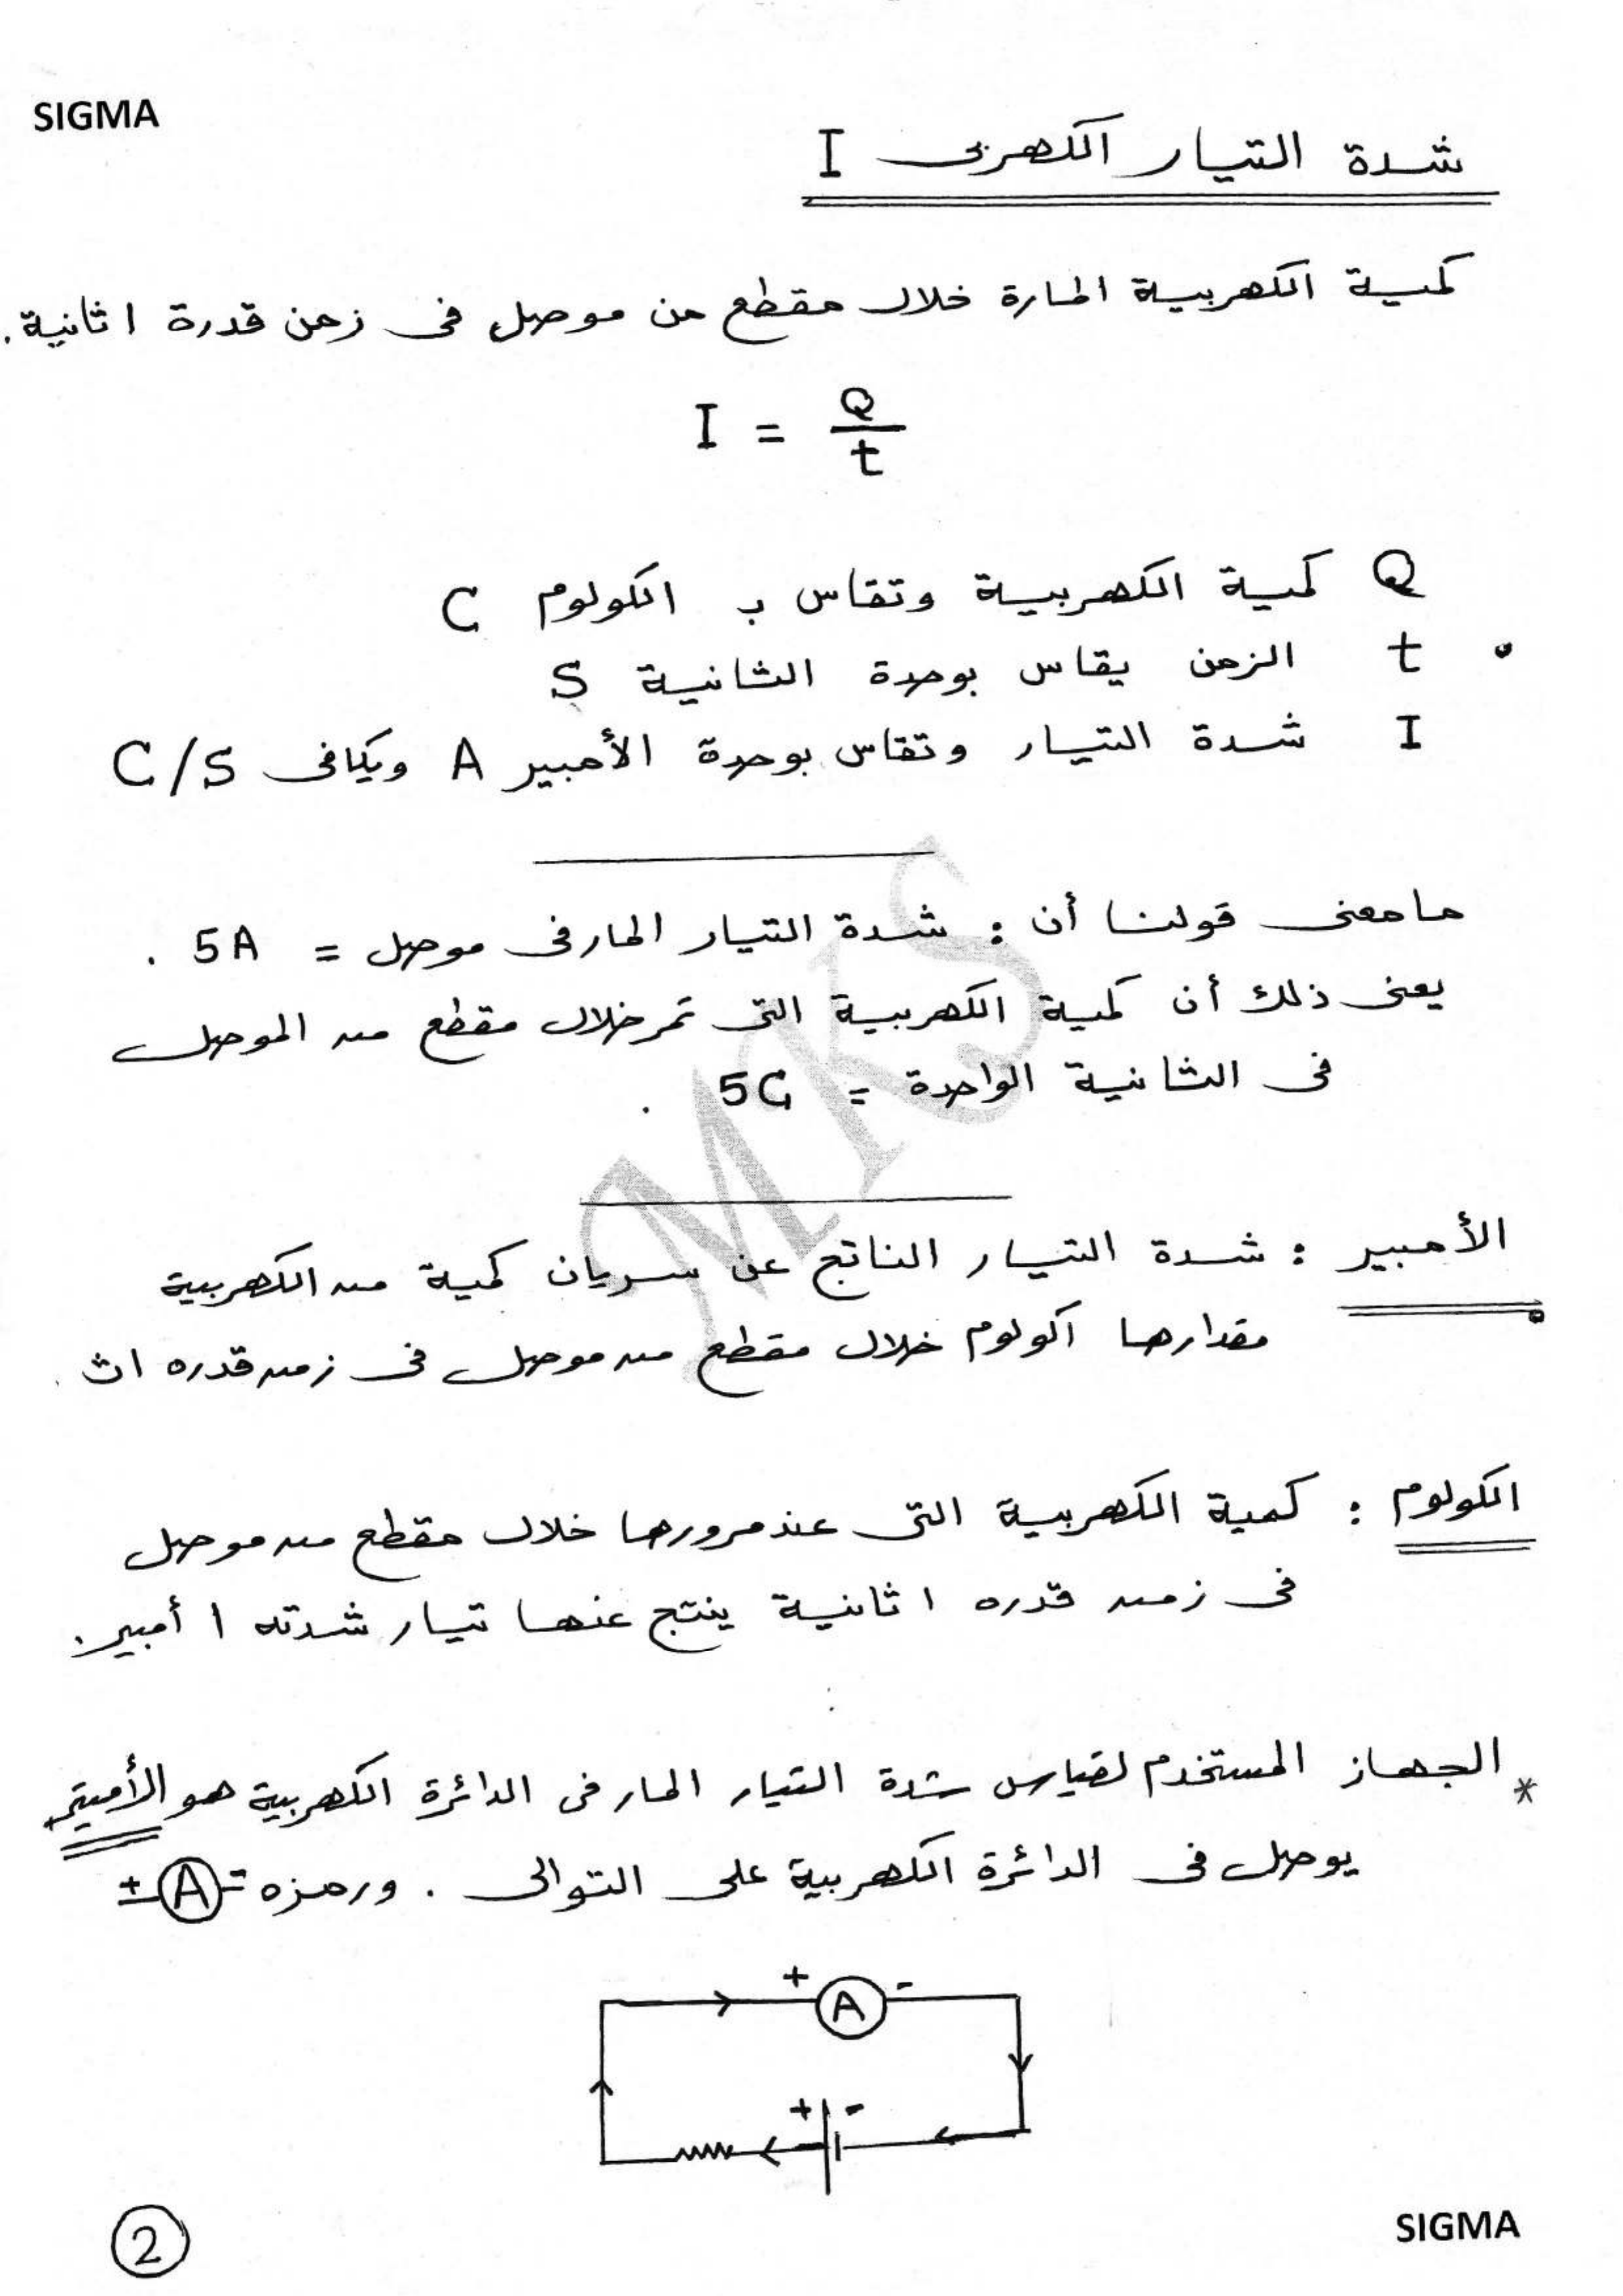 SIGMA
شدة التيار الكهربى I
كمية الكهربية المارة خلال مقطع من موصل فى زمن قدرة ١ ثانية.
I = Q/t
Q كمية الكهربية وتقاس ب الكولوم C
t الزمن يقاس بوحدة الثانية S
I شدة التيار وتقاس بوحدة الأمبير A ويكافى C/S
ما معنى قولنا أن : شدة التيار المار فى موصل = 5A .
يعنى ذلك أن كمية الكهربية التى تمر خلال مقطع من الموصل
فى الثانية الواحدة = 5C .
الأمبير : شدة التيار الناتج عن سريان كمية من الكهربية
مقدارها ١ كولوم خلال مقطع من موصل فى زمن قدره ١ث .
الكولوم : كمية الكهربية التى عند مرورها خلال مقطع من موصل
فى زمن قدره ١ ثانية ينتج عنها تيار شدته ١ أمبير.
* الجهاز المستخدم لقياس شدة التيار المار فى الدائرة الكهربية هو الأميتر.
يوصل فى الدائرة الكهربية على التوالى . ورمزه - A +
+ A -
+ -
MKS
2
SIGMA